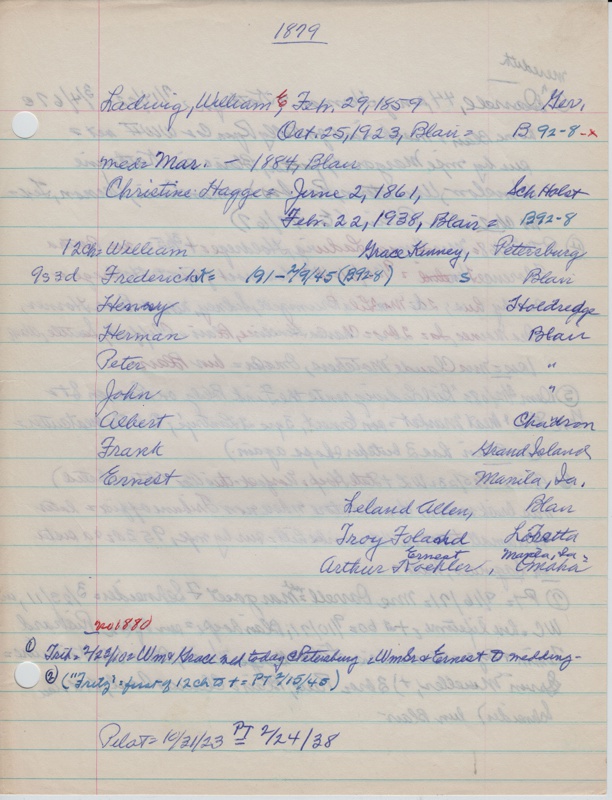 1879
Ladwig, William E, Feb. 29, 1859 Ger.
Oct. 25, 1923, Blair = B 92-8-x
med = Mar. - 1884, Blair
Christine Hagge = June 2, 1861, Sch Holst
Feb. 22, 1938, Blair = B92-8
12ch = William Grace Kinney, Petersburg
9s3d Frederick t = 191 - 2/9/45 (B92-8) S Blair
Henry Holdredge
Herman Blair
Peter "
John "
Albert Chadron
Frank Grand Island
Ernest Manila, Ia.
Leland Allen, Blair
Troy Foland Loretta
Arthur Koehler, Omaha
Ernest Manila, Ia =
no 1880
① Trib = 2/23/10 = Wm & Grace med today @ Petersburg & Wm Sr & Ernest to wedding -
② ("Fritz" = first of 12ch to t = PT 2/15/45)
Pilot = 10/31/23 PT = 2/24/38